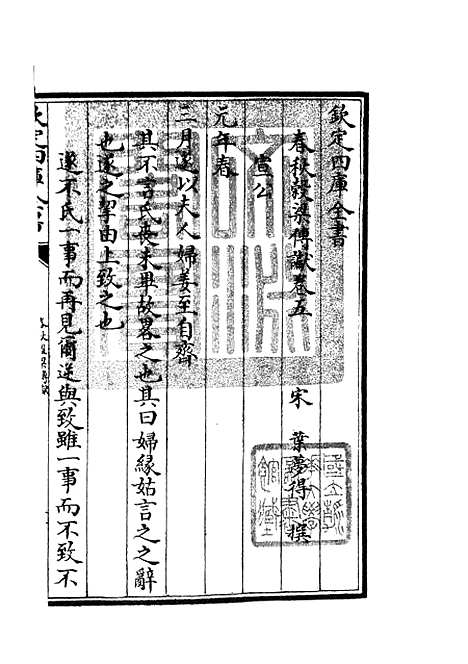 欽定四庫全書
春秋穀梁傳讞卷五
宋 葉夢得 撰
宣公
元年春
三月遂以夫人婦姜至自齊
其不言氏喪未畢故畧之也其曰婦緣姑言之之辭
也遂之挈由上致之也
遂不氏一事而再見爾逆與致雖一事而不致不
欽定四庫全書